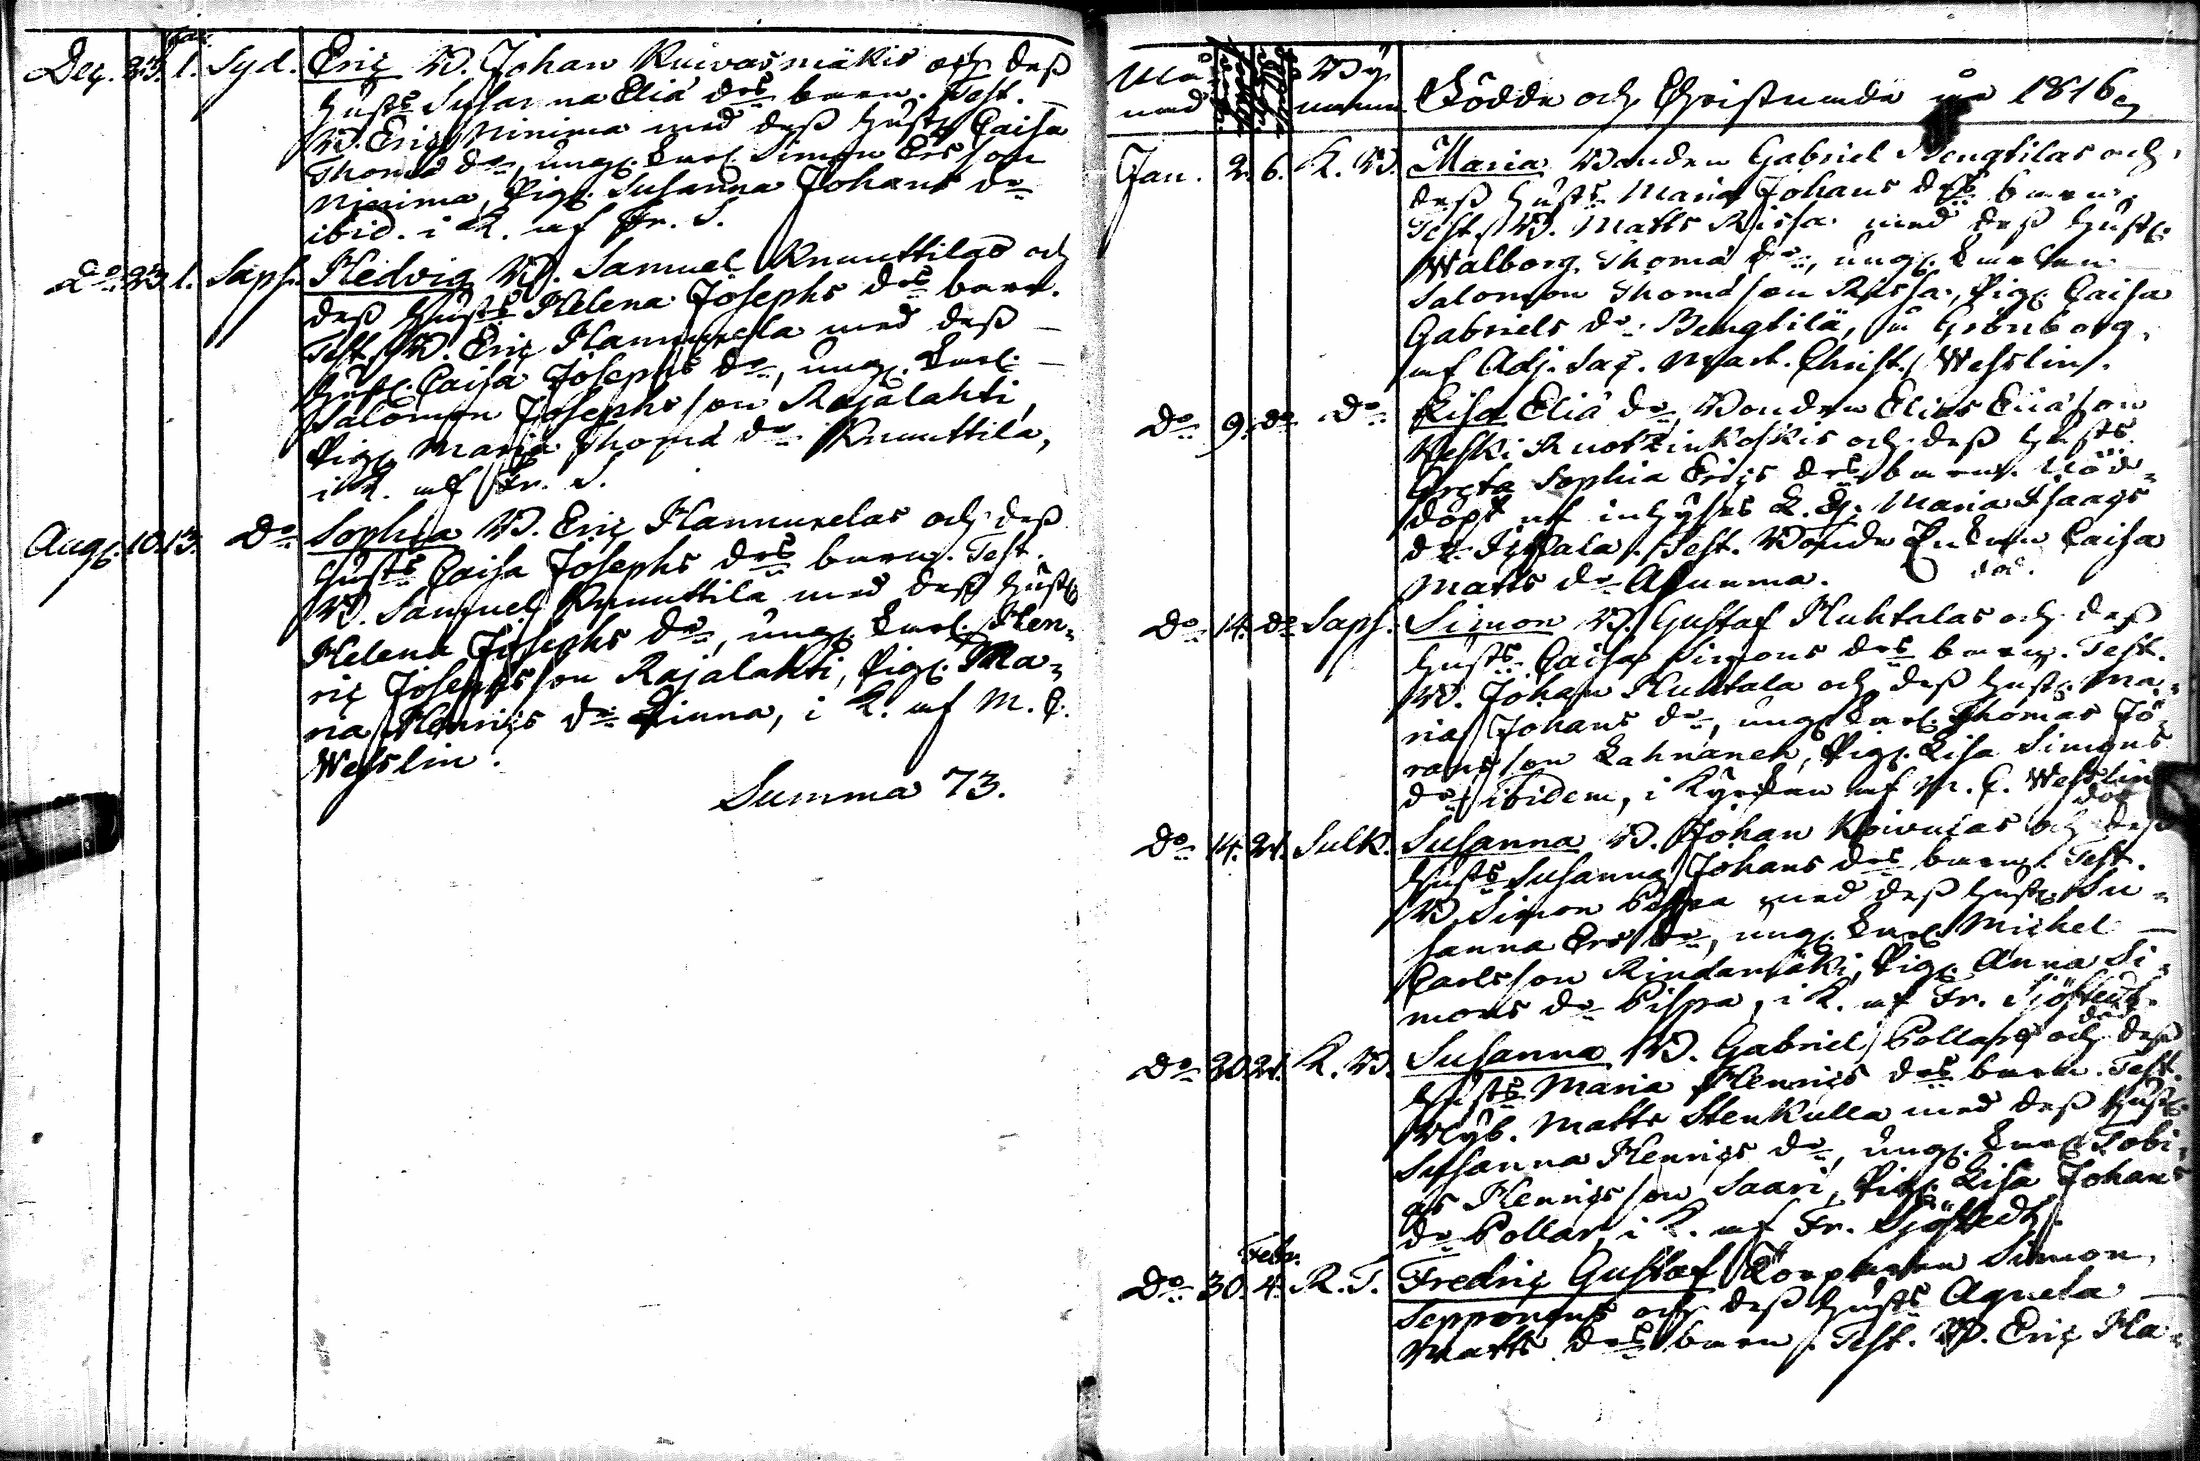 Jan.
Dec. 23. 1. Syd. Eric B. Johan Kuivasmäkis och deß
hust:s Susanna Eliæ d:rs barn. Test.
B. Eric Ninima med deß hust. Caisa
Thomæ d:r, ung. karl. Simon Ersson
Ninima, Pig. Susanna Johans d:r
ibid. i K. af Fr. S.
D:o 23. 1. Saph. Hedvig B. Samuel Knuuttilas och
deß hust:s Helena Josephs d:rs barn.
Test. B. Eric Hannuxela med deß
hust. Caisa Josephs d:r, ung. karl.
Salomon Josephsson Rajalahti,
Pig. Maria Thomæ d:r Knuuttila,
i K. af Fr. S.
Aug. 10. 13. D:o Sophia B. Eric Hannuxelas och deß
hust:s Caisa Josephs d:rs barn. Test.
B. Samuel Knuuttila med deß hust.
Helena Josephs d:r, ung. karl. Hen-
ric Josephsson Rajalahti, Pig. Ma-
ria Henrics d:r Pinna, i K. af M. C.
Wesslin.
Summa 73.
Må-
nad By
namn Födde och Christnade år 1816
Jan. 2. 6. K. B. Maria Bonden Gabriel Bengtilas och
deß hust:s Maria Johans d:rs barn,
Test. B. Matts Rissa med deß hust.
Walborg Thomæ d:r, ung. karlen
Salomon Thomæson Rissa, Pig. Caisa
Gabriels d:r Bengtilä, å Grönborg,
af Adj. Sac. Mart. Christ. Wesslin.
D:o 9. d:o D:o Lisa Eliæ d:r Bonden Elias Eliæson
Keski Ruotzinkoskis och deß hust:s
Greta Sophia Erics d:rs barn. Nöd-
döpt af inhyses Maria Isaacs
d:r Test. Bonde Enkan Caisa
Matts d:r Asunma. död.
D:o 14. d:o Saph. Simon B. Gustaf Huhtalas och deß
hust:s Caisa Simons d:rs barn. Test.
B. Johan Huhtala och deß hust. Ma-
ria Johans d:r, ung. karl. Thomas Jö-
ransson Lahnanen, Pig. Lisa Simons
d:r ibidem, i Kyrkan af M. C. Wesslin
död
D:o 14. 21. Sulk. Susanna B. Johan Koivulas och deß
hust:s Susanna Johans d:rs barn. Test.
B. Simon Pispa med deß hust. Su-
sanna Ers d:r, ung. karl. Michel
Carlsson Rindamäki, Pig. Anna Si-
mons d:r Pispa, i K. af Fr. Sjöstedt.
död
D:o 20. 21. K. B. Susanna B. Gabriel Pollars och deß
hust:s Maria Henrics d:rs barn. Test.
Nyb. Matts Stenkulla med deß hust.
Susanna Henrics d:r, ung. karl. Tobi-
as Henricsson Saari, Pig. Lisa Johans
d:r Pollar, i K. af Fr. Sjöstedt.
Febr.
D:o 30. 4. R. T. Fredric Gustaf Torparen Simon
Sepponens och deß hust:s Agneta
Matts d:rs barn. Test. B. Eric Ha-